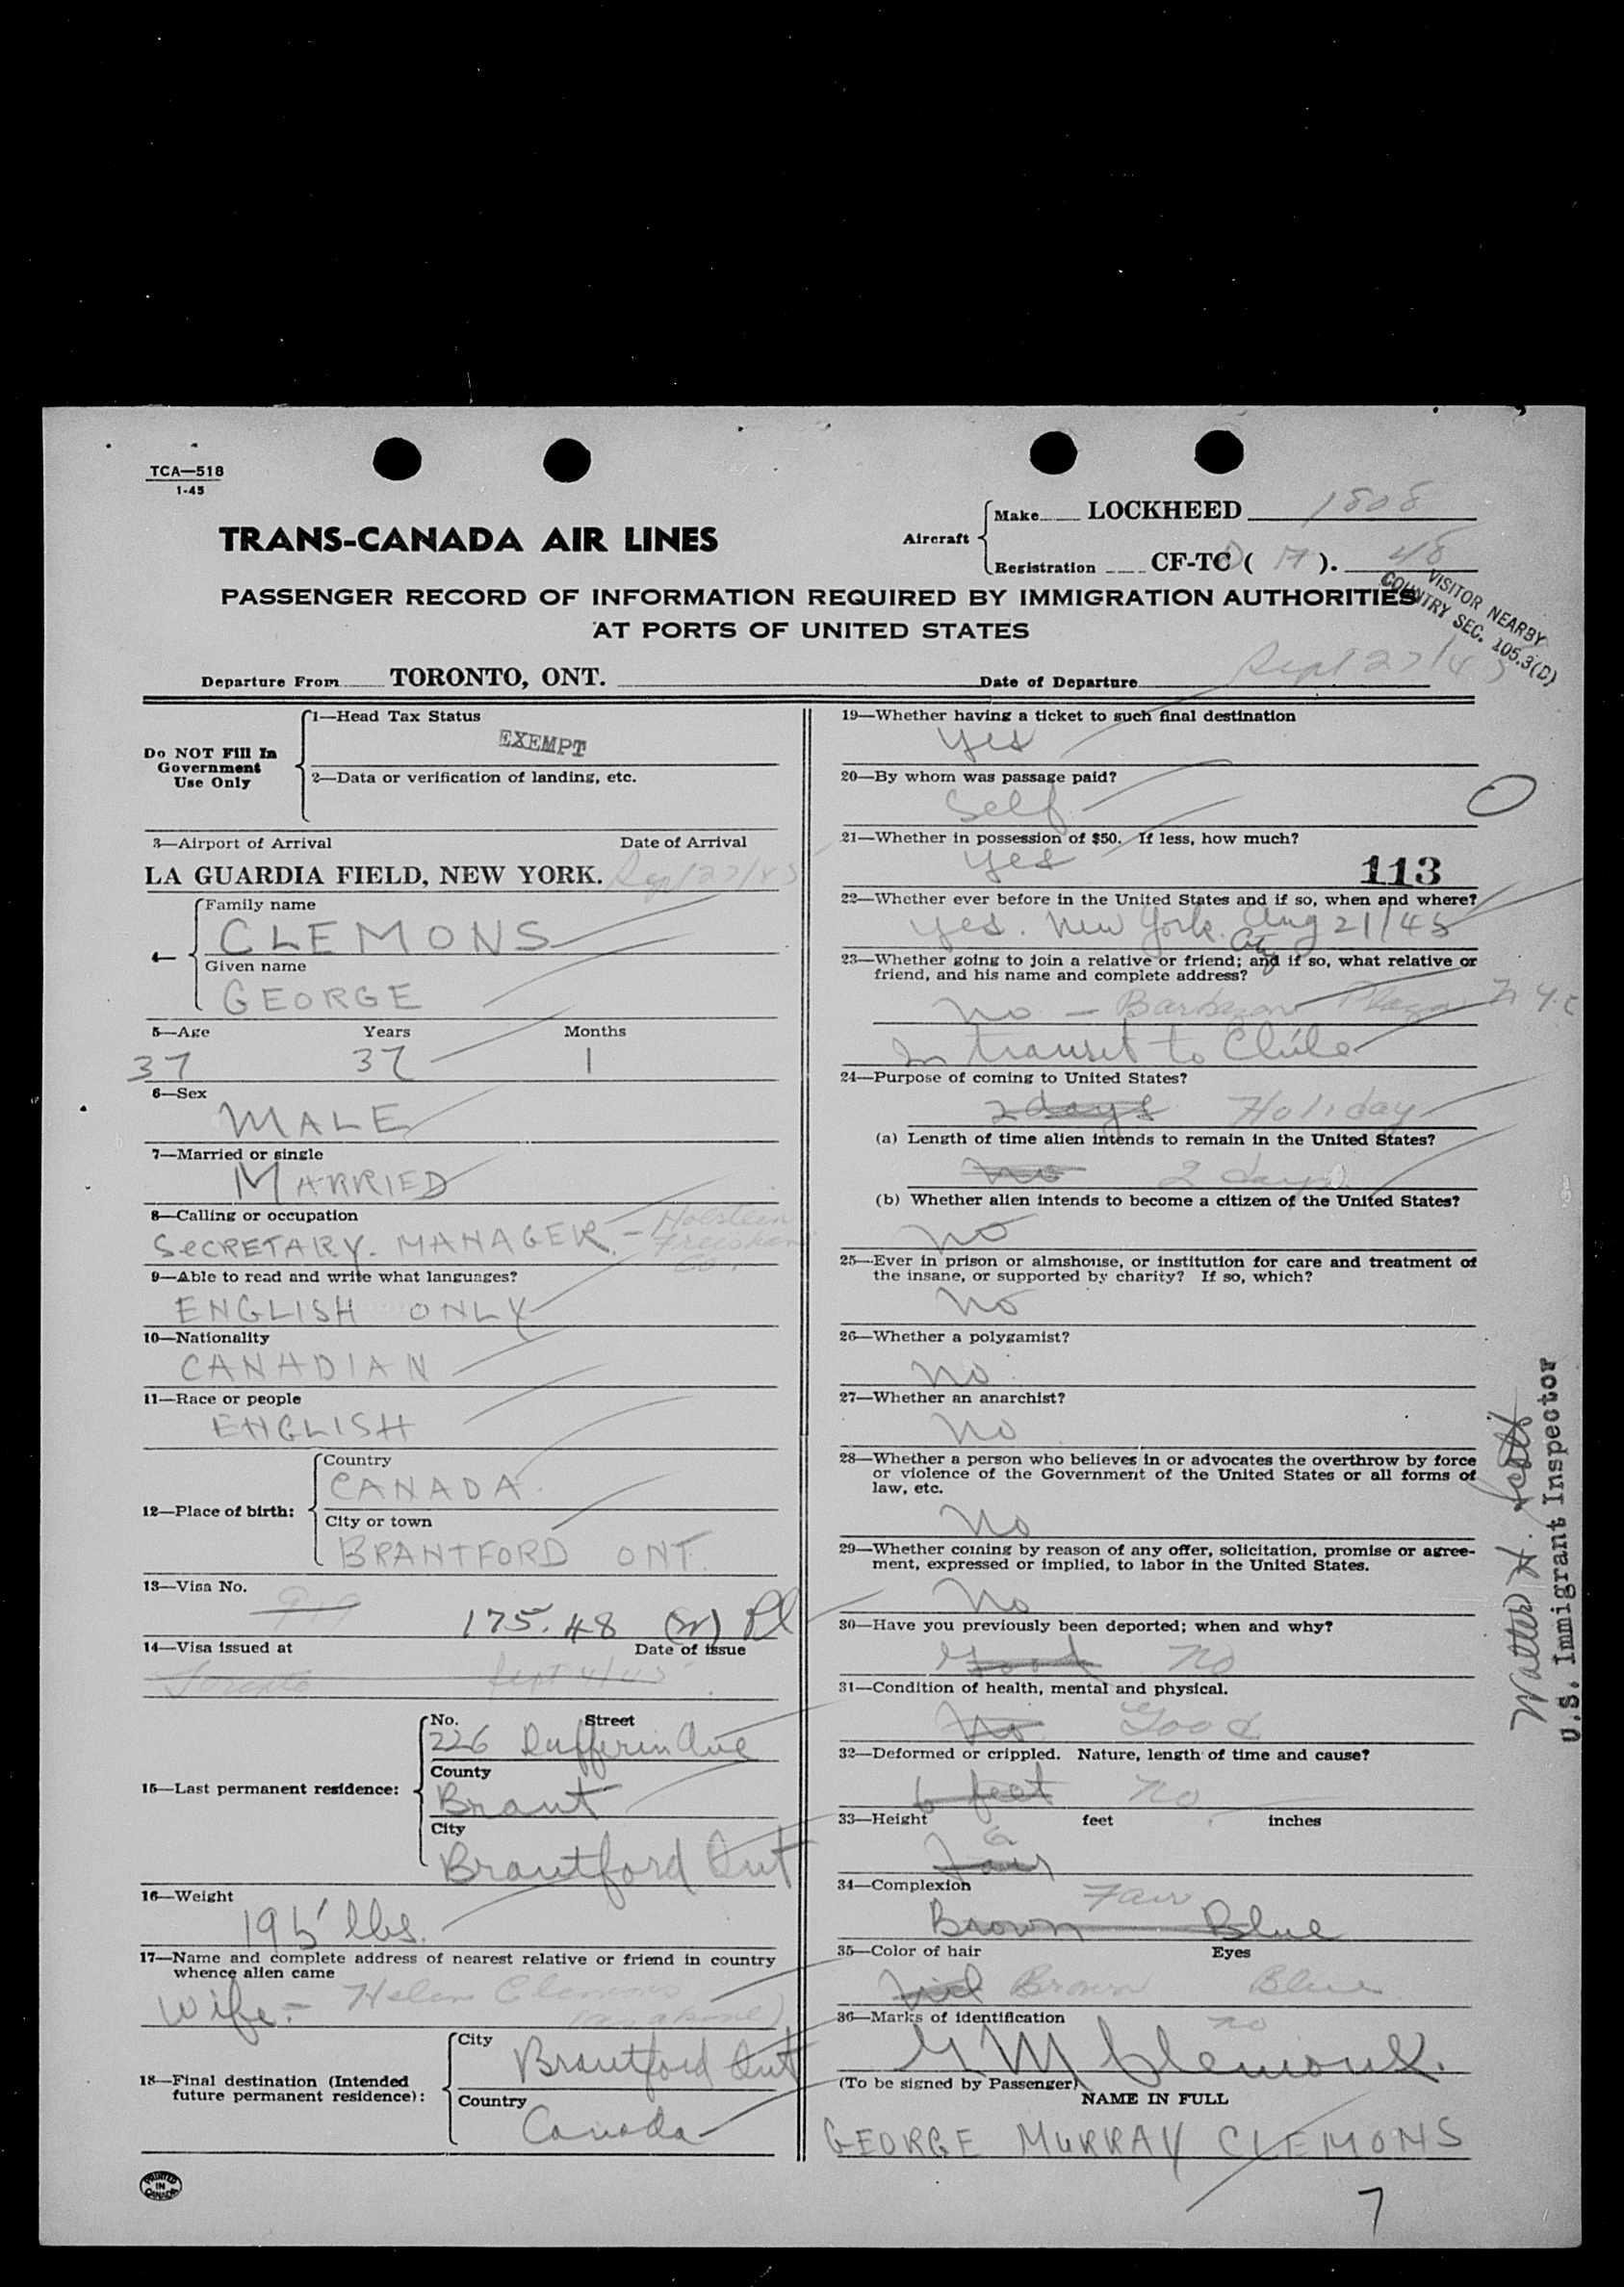 TCA—518
1-45
TRANS-CANADA AIR LINES
Aircraft
Make LOCKHEED 1808
Registration CF-TC ( ). 48
PASSENGER RECORD OF INFORMATION REQUIRED BY IMMIGRATION AUTHORITIES
AT PORTS OF UNITED STATES
VISITOR NEARBY
COUNTRY SEC. 105.3(D)
Departure From TORONTO, ONT. Date of Departure Sept 27/45
Do NOT Fill In
Government
Use Only
1—Head Tax Status
EXEMPT
2—Data or verification of landing, etc.
3—Airport of Arrival Date of Arrival
LA GUARDIA FIELD, NEW YORK. Sept 27/45
4—
Family name
CLEMONS
Given name
GEORGE
5—Age Years Months
37 37 1
6—Sex
MALE
7—Married or single
MARRIED
8—Calling or occupation
SECRETARY. MANAGER. — Holstein
Freisian
Co.
9—Able to read and write what languages?
ENGLISH ONLY
10—Nationality
CANADIAN
11—Race or people
ENGLISH
12—Place of birth:
Country
CANADA.
City or town
BRANTFORD ONT.
13—Visa No.
175.48
14—Visa issued at Date of issue
Toronto Sept 4/45
15—Last permanent residence:
No. Street
226 Dufferin Ave
County
Brant
City
Brantford Ont
16—Weight
195 lbs.
17—Name and complete address of nearest relative or friend in country
whence alien came
Wife:— Helen Clemons
(as above)
18—Final destination (Intended
future permanent residence):
City
Brantford Ont
Country
Canada
PRINTED
IN
CANADA
19—Whether having a ticket to such final destination
Yes
20—By whom was passage paid?
Self
21—Whether in possession of $50. If less, how much?
Yes
113
22—Whether ever before in the United States and if so, when and where?
Yes. New York. City Aug 21/45
23—Whether going to join a relative or friend; and if so, what relative or
friend, and his name and complete address?
No — Barbizon Plaza N.Y.C
In transit to Chile
24—Purpose of coming to United States?
2 days Holiday
(a) Length of time alien intends to remain in the United States?
No 2 days
(b) Whether alien intends to become a citizen of the United States?
No
25—Ever in prison or almshouse, or institution for care and treatment of
the insane, or supported by charity? If so, which?
No
26—Whether a polygamist?
No
27—Whether an anarchist?
No
28—Whether a person who believes in or advocates the overthrow by force
or violence of the Government of the United States or all forms of
law, etc.
No
29—Whether coming by reason of any offer, solicitation, promise or agree-
ment, expressed or implied, to labor in the United States.
No
30—Have you previously been deported; when and why?
Good No
31—Condition of health, mental and physical.
No Good
32—Deformed or crippled. Nature, length of time and cause?
6 feet No
33—Height feet inches
6
Fair
34—Complexion
Fair
Brown Blue
35—Color of hair Eyes
Nil Brown Blue
36—Marks of identification
no
G M Clemons.
(To be signed by Passenger)
NAME IN FULL
GEORGE MURRAY CLEMONS
7
Walter H. Scott
U.S. Immigrant Inspector